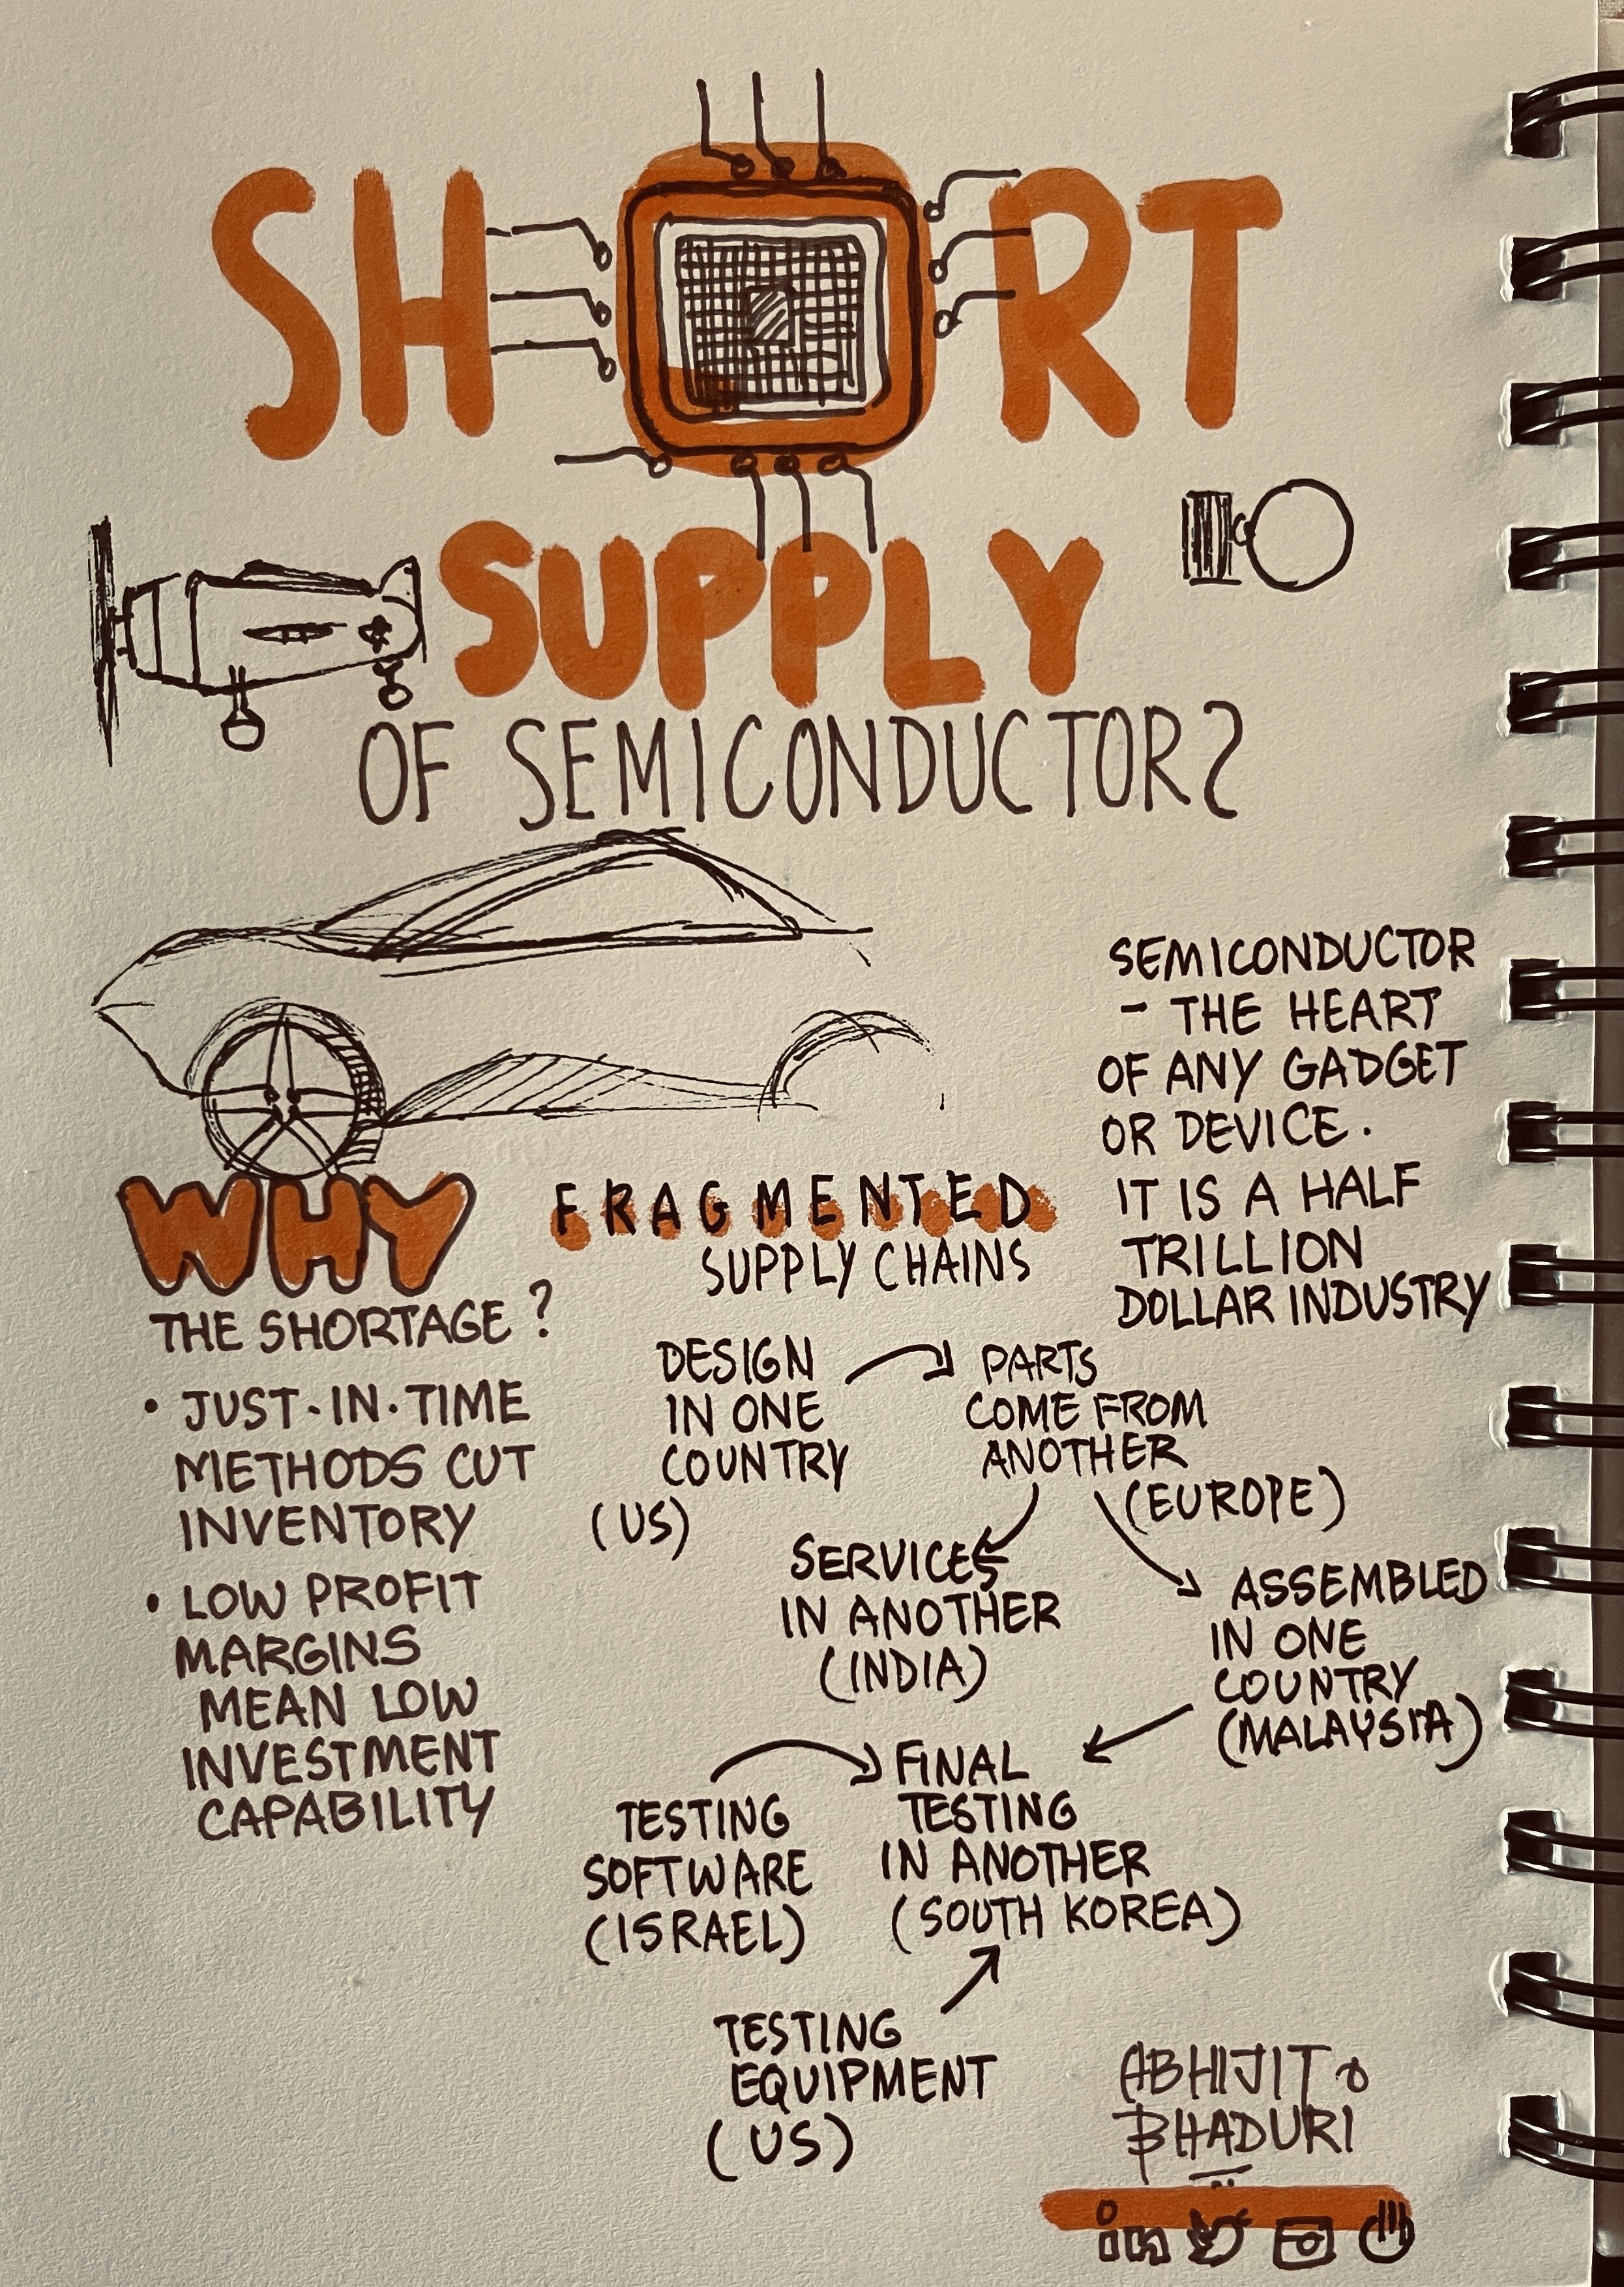 SHORT
SUPPLY
OF SEMICONDUCTORS
SEMICONDUCTOR
- THE HEART
OF ANY GADGET
OR DEVICE.
IT IS A HALF
TRILLION
DOLLAR INDUSTRY
WHY
THE SHORTAGE?
• JUST-IN-TIME
METHODS CUT
INVENTORY
• LOW PROFIT
MARGINS
MEAN LOW
INVESTMENT
CAPABILITY
FRAGMENTED
SUPPLY CHAINS
DESIGN
IN ONE
COUNTRY
(US)
PARTS
COME FROM
ANOTHER
(EUROPE)
SERVICES
IN ANOTHER
(INDIA)
ASSEMBLED
IN ONE
COUNTRY
(MALAYSIA)
FINAL
TESTING
IN ANOTHER
(SOUTH KOREA)
TESTING
SOFTWARE
(ISRAEL)
TESTING
EQUIPMENT
(US)
ABHIJIT
BHADURI
in